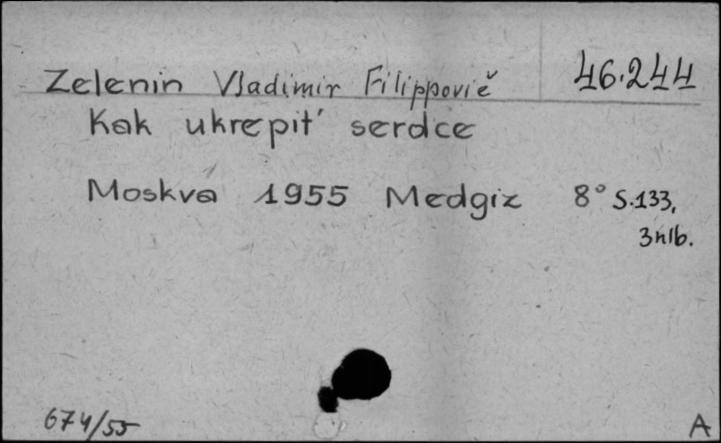 Zelenin Vladimir Filippovič 46.244
Kak ukrepit' serdce
Moskva 1955 Medgiz 8° S.133,
3nlb.
674/55
A